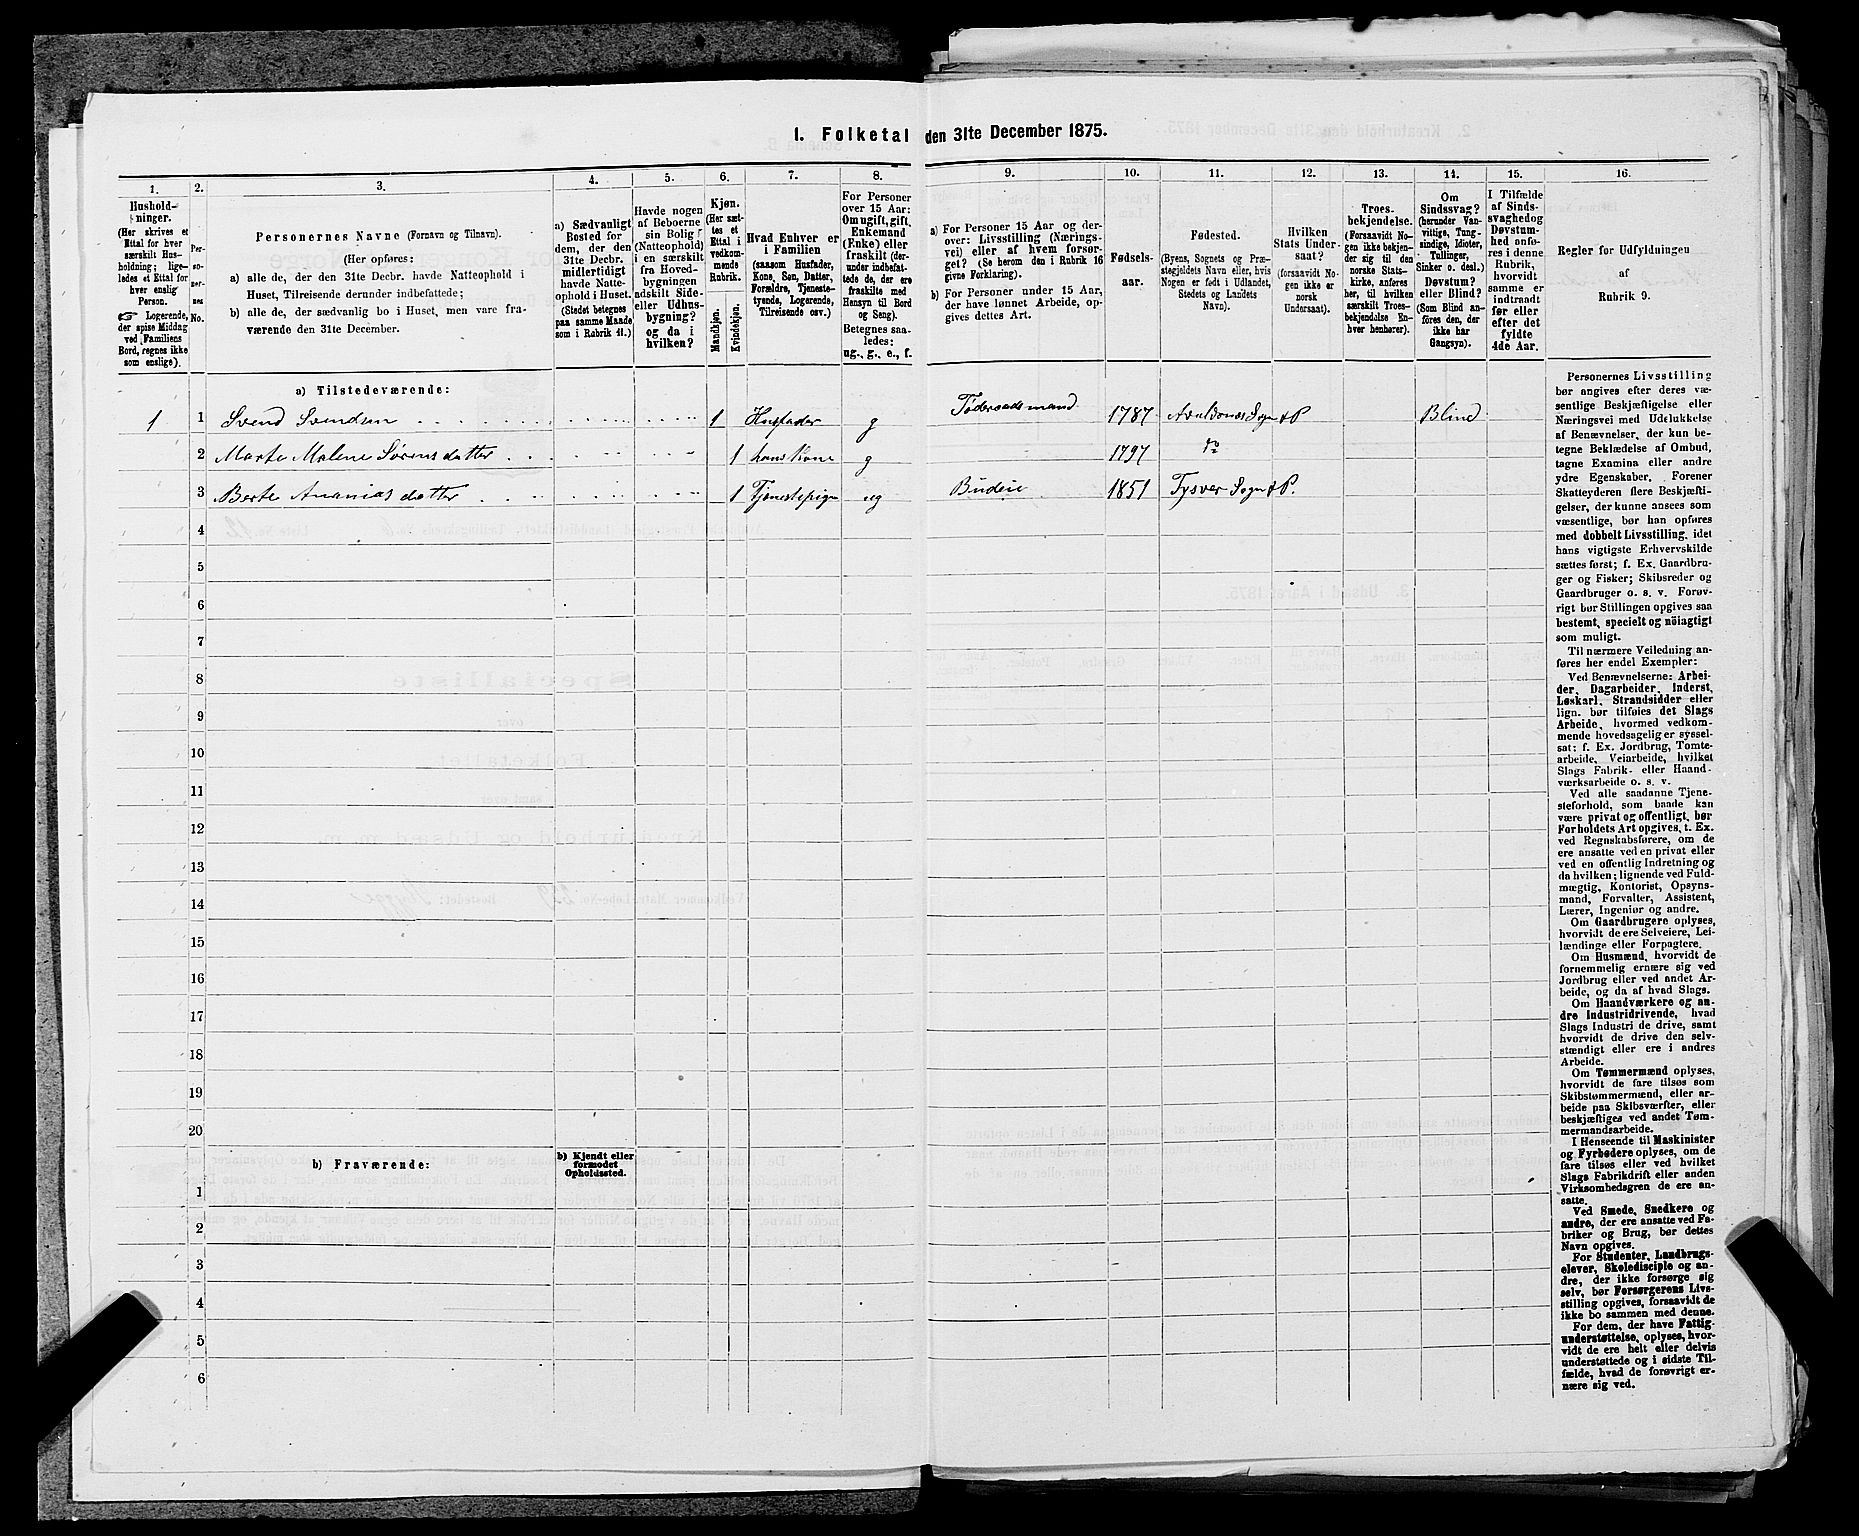 1. Folketal den 31te December 1875.
1.
Hushold-
ninger.
(Her skrives et
Ettal for hver
særskilt Hus-
holdning; lige-
ledes et Ettal for
hver enslig
Person.
☞ Logerende,
der spise Middag
ved Familiens
Bord, regnes ikke
som enslige).
2.
Per-
so-
ner-
nes
No.
3.
Personernes Navne (Fornavn og Tilnavn).
(Her opføres:
a) alle de, der den 31te Decbr. havde Natteophold i
Huset, Tilreisende derunder indbefattede;
b) alle de, der sædvanlig bo i Huset, men vare fra-
værende den 31te December.
4.
a) Sædvanligt
Bosted for
dem, der den
31te Decbr.
midlertidigt
havde Natte-
ophold i Huset.
(Stedet betegnes
paa samme Maade
som i Rubrik 11.)
5.
Havde nogen
af Beboerne
sin Bolig
(Natteophold)
i en særskilt
fra Hoved-
bygningen
adskilt Side-
eller Udhus-
bygning?
og da i
hvilken?
6.
Kjøn.
(Her sæt-
tes et
Ettal i
vedkom-
mende
Rubrik.
Mandkjøn.
Kvindekjøn.
7.
Hvad Enhver er
i Familien
(saasom Husfader,
Kone, Søn, Datter,
Forældre, Tjeneste-
tyende, Logerende,
Tilreisende osv.)
8.
For Personer
over 15 Aar:
Om ugift, gift,
Enkemand
(Enke) eller
fraskilt (der-
under indbefat-
tede de, der ere
fraskilte med
Hensyn til Bord
og Seng).
Betegnes saa-
ledes:
ug., g., e., f.
9.
a) For Personer 15 Aar og der-
over: Livsstilling (Nærings-
vei) eller af hvem forsør-
get? (Se herom den i Rubrik 16
givne Forklaring).
b) For Personer under 15 Aar,
der have lønnet Arbeide, op-
gives dettes Art.
10.
Fødsels-
aar.
11.
Fødested.
(Byens, Sognets og Præ-
stegjeldets Navn eller, hvis
Nogen er født i Udlandet,
Stedets og Landets
Navn).
12.
Hvilken
Stats Under-
saat?
(forsaavidt No-
gen ikke er
norsk
Undersaat).
13.
Troes-
bekjendelse.
(Forsaavidt No-
gen ikke bekjen-
der sig til den
norske Stats-
kirke, anføres
her, til hvilken
særskilt Troes-
bekjendelse En-
hver henhører).
14.
Om
Sindssvag?
(herunder Van-
vittige, Tung-
sindige, Idioter,
Tullinger,
Sinker o. desl.)
Døvstum?
eller Blind?
(Som Blind an-
føres den, der
ikke har
Gangsyn).
15.
I Tilfælde
af Sinds-
svaghed og
Døvstum-
hed anfø-
res i denne
Rubrik,
hvorvidt
samme er
indtraadt
før eller
efter det
fyldte
4de Aar.
16.
Regler for Udfyldningen
af
Rubrik 9.
a) Tilstedeværende:
1 1 Svend Svendsen 1 Husfader g Føderaadsmand 1787 Avaldsnæs Sogn & P Blind
2 Marte Malene Sørensdatter 1 hans Kone g 1797 do
3 Berte Ananiasdatter 1 Tjenestepige ug Budeie 1851 Tysver Sogn & P.
4
5
6
7
8
9
10
11
12
13
14
15
16
17
18
19
20
b) Fraværende:
b) Kjendt eller
formodet
Opholdssted.
1
2
3
4
5
6
Personernes Livsstilling
bør angives efter deres væ-
sentlige Beskjæftigelse eller
Næringsvei med Udelukkelse
af Benævnelser, der kun be-
tegne Beklædelse af Ombud,
tagne Examina eller andre
ydre Egenskaber. Forener
Skatteyderen flere Beskjæfti-
gelser, der kunne ansees som
væsentlige, bør han opføres
med dobbelt Livsstilling, idet
hans vigtigste Erhvervskilde
sættes først; f. Ex. Gaardbru-
ger og Fisker; Skibsreder og
Gaardbruger o. s. v. Forøv-
rigt bør Stillingen opgives saa
bestemt, specielt og nøiagtigt
som muligt.
Til nærmere Veiledning an-
føres her endel Exempler:
Ved Benævnelserne: Arbei-
der, Dagarbeider, Inderst,
Løskarl, Strandsidder eller
lign. bør tilføies det Slags
Arbeide, hvormed vedkom-
mende hovedsagelig er syssel-
sat; f. Ex. Jordbrug, Tomte-
arbeide, Veiarbeide, hvilket
Slags Fabrik- eller Haand-
værksarbeide o. s. v.
Ved alle saadanne Tjene-
steforhold, som baade kan
være privat og offentligt, bør
Forholdets Art opgives, t. Ex.
ved Regnskabsførere, om de
ere ansatte ved en privat eller
ved en offentlig Indretning og
da hvilken; lignende ved Fuld-
mægtig, Kontorist, Opsyns-
mand, Forvalter, Assistent,
Lærer, Ingeniør og andre.
Om Gaardbrugere oplyses,
hvorvidt de ere Selveiere, Lei-
lændinge eller Forpagtere.
Om Husmænd, hvorvidt de
fornemmelig ernære sig ved
Jordbrug eller ved andet Ar-
beide, og da af hvad Slags.
Om Haandværkere og an-
dre Industridrivende, hvad
Slags Industri de drive, samt
hvorvidt de drive den selv-
stændigt eller ere i andres
Arbeide.
Om Tømmermænd oplyses,
hvorvidt de fare tilsøs som
Skibstømmermænd, eller ar-
beide paa Skibsværfter, eller
beskjæftiges ved andet Tøm-
mermandsarbeide.
I Henseende til Maskinister
og Fyrbødere oplyses, om de
fare tilsøs eller ved hvilket
Slags Fabrikdrift eller anden
Virksomhedsgren de ere an-
satte.
Ved Smede, Snedkere og
andre, der ere ansatte ved Fa-
briker og Brug, bør dettes
Navn opgives.
For Studenter, Landbrugs-
elever, Skoledisciple og an-
dre, der ikke forsørge sig
selv, bør Forsørgerens Livs-
stilling opgives, forsaavidt de
ikke bo sammen med denne.
For dem, der have Fattig-
understøttelse, oplyses, hvor-
vidt de ere helt eller delvis
understøttede og i sidste Til-
fælde, hvad de forøvrigt er-
nære sig ved.